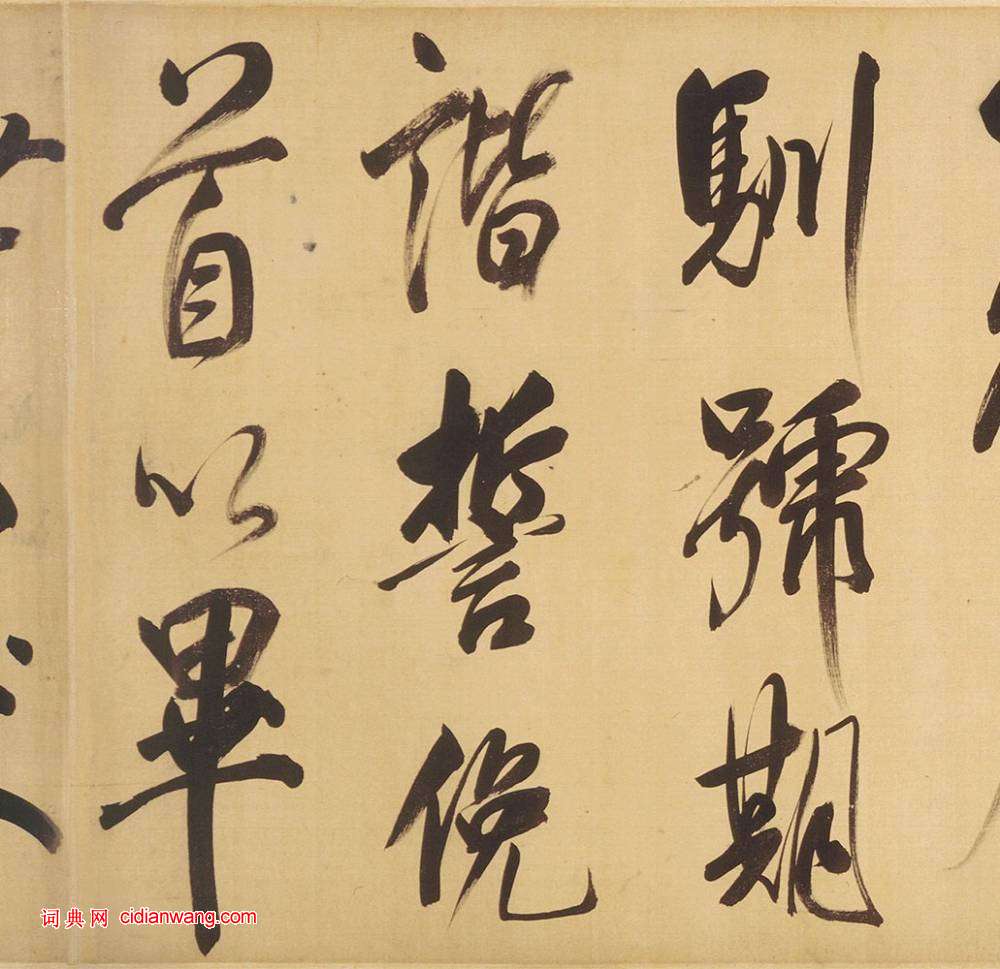 馴號期
諧誓俛
首以畢
词典网 cidianwang.com